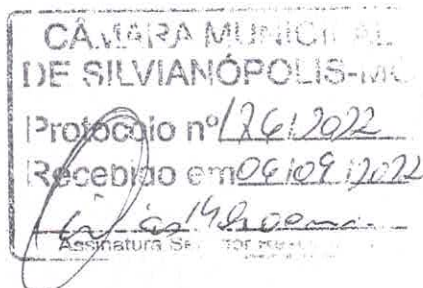 CÂMARA MUNICIPAL
DE SILVIANÓPOLIS-MG
Protocolo nº 186/2022
Recebido em 06/09/2022
às 14h
Assinatura Servidor